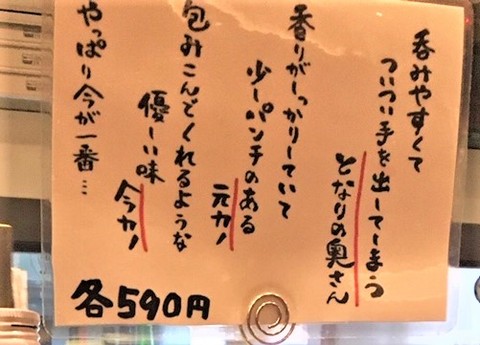 呑みやすくて
ついつい手を出してしまう
となりの奥さん
香りがしっかりしていて
少しパンチのある
元カノ
包みこんでくれるような
優しい味
今カノ
やっぱり今が一番…
各590円